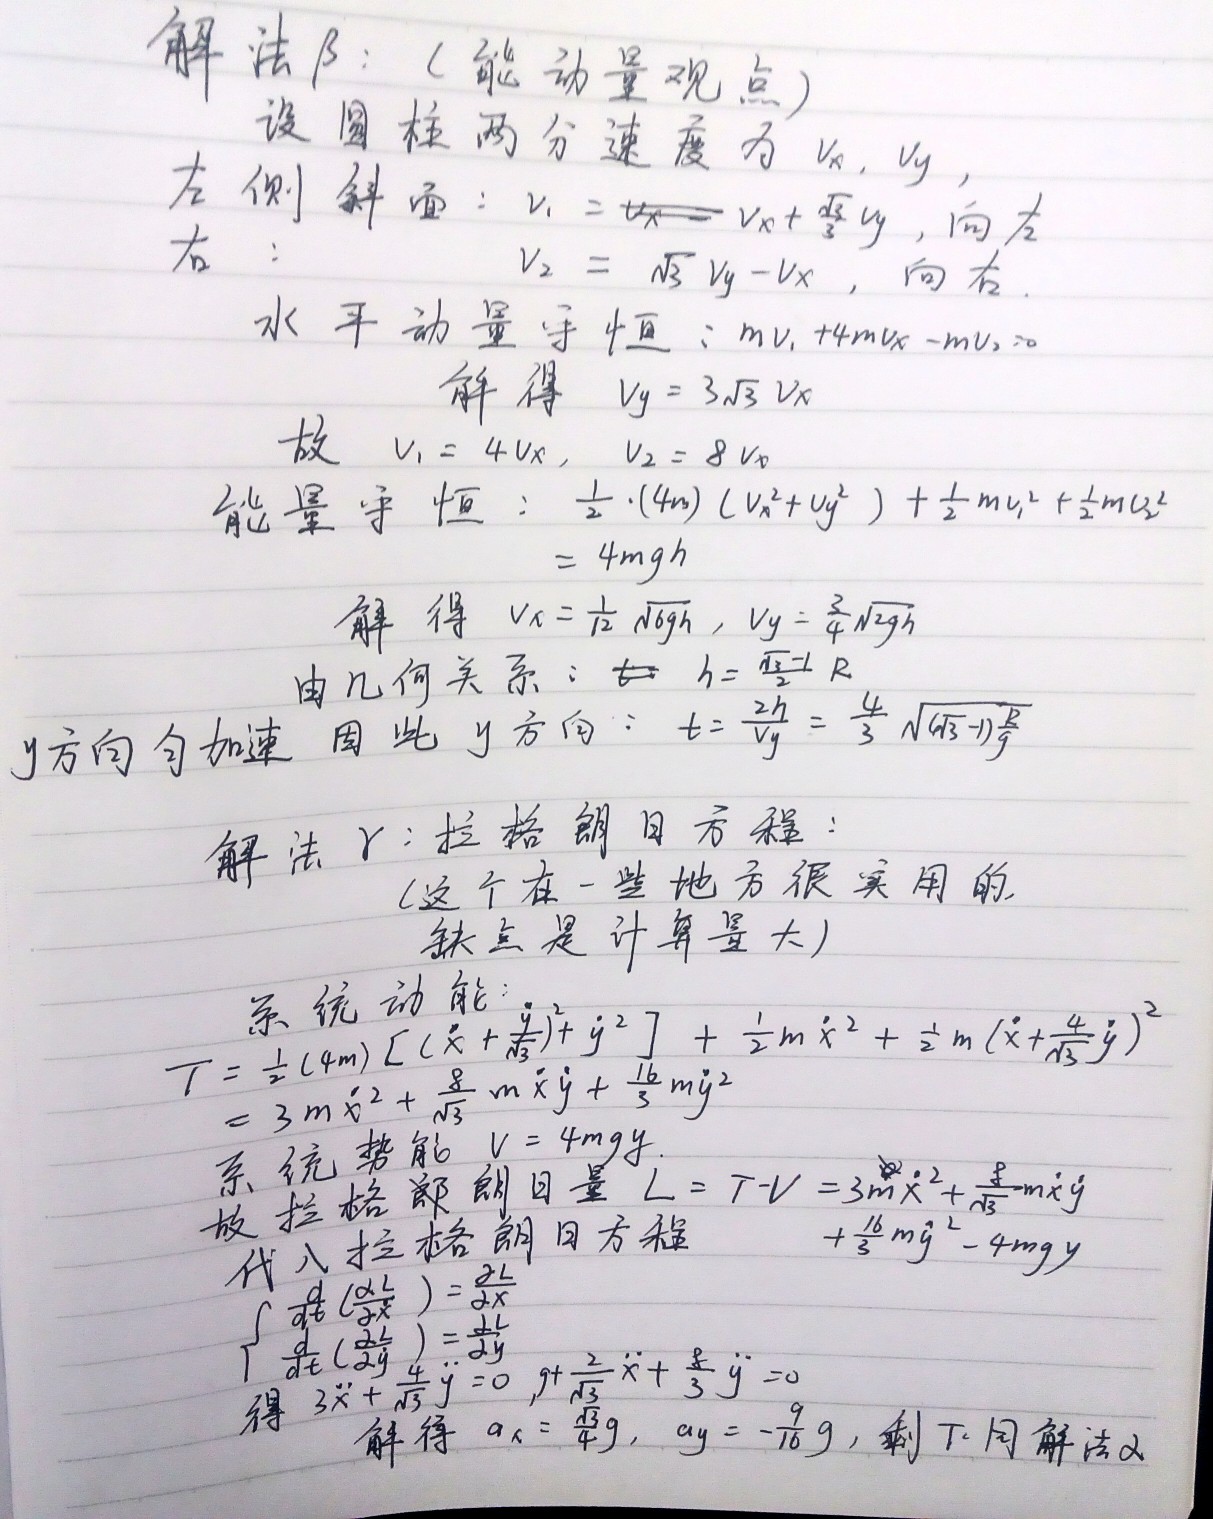 解法β：（能动量观点）
设圆柱两分速度为 Vx, Vy,
左侧斜面：V₁ = Vx + √3/3 Vy，向左
右： V₂ = √3 Vy - Vx，向右.
水平动量守恒：mV₁ + 4mVx - mV₂ = 0
解得 Vy = 3√3 Vx
故 V₁ = 4Vx, V₂ = 8Vx
能量守恒：1/2·(4m)(Vx² + Vy²) + 1/2 mV₁² + 1/2 mV₂²
= 4mgh
解得 Vx = 1/12 √(6gh), Vy = 3/4 √(2gh)
由几何关系： h = (√3-1)/2 R
y方向匀加速 因此 y方向：t = 2h/Vy = 4/3 √((√3-1)R/g)
解法γ：拉格朗日方程：
（这个在一些地方很实用的.
缺点是计算量大）
系统动能：
T = 1/2(4m)[(ẋ + ẏ/√3)² + ẏ²] + 1/2 mẋ² + 1/2 m(ẋ + 4/√3 ẏ)²
= 3mẋ² + 8/√3 mẋẏ + 16/3 mẏ²
系统势能 V = 4mgy.
故拉格朗日量 L = T-V = 3mẋ² + 8/√3 mẋẏ
+ 16/3 mẏ² - 4mgy
代入拉格朗日方程
{ d/dt(∂L/∂ẋ) = ∂L/∂x
d/dt(∂L/∂ẏ) = ∂L/∂y
得 3ẍ + 4/√3 ÿ = 0, g + 2/√3 ẍ + 8/3 ÿ = 0
解得 ax = √3/4 g, ay = -9/16 g, 剩下同解法α